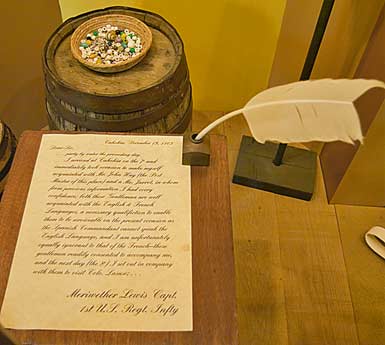 Cahokia, December 19, 1803
Dear Sir,
party to make the preceding day.
I arrived at Cahokia on the 7th and
immediately took occasion to make myself
acquainted with Mr. John Hay (the Post
Master of this place) and a Mr. Jarrot, in whom
from previous information I had every
confidence, both these Gentlemen are well
acquainted with the English & French
Languages, a necessary qualification to enable
them to be servicable on the present occasion as
the Spanish Commandant cannot speak the
English Language, and I am unfortunately
equally ignorant to that of the French—these
gentlemen readily consented to accompany me,
and the next day (the 8) I set out in company
with them to visit Colo. Lasuse; . . .
Meriwether Lewis Capt.
1st U.S. Regt. Infty